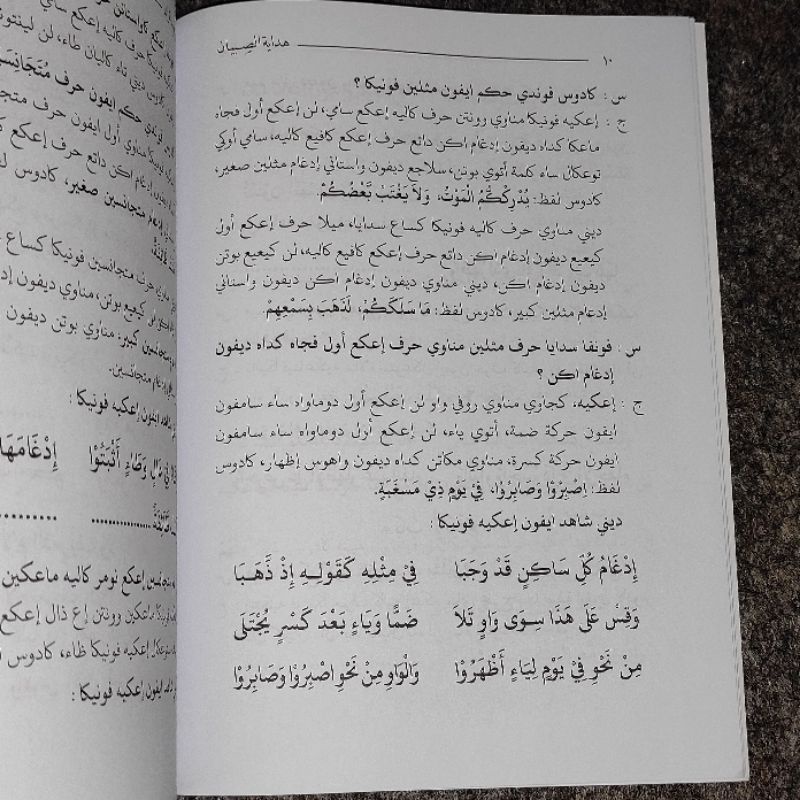 ١٠ هداية الصبيان
س : كادوس فوندي حكم ايفون مثلين فونيكا ؟
ج : إعكيه فونيكا مناوي رونتن حرف كاليه إعكع سامي، لن إعكع أول فجاه
ماعكا كداه ديفون إدغام اكن داتع حرف إعكع كافيع كاليه، سامي أوكي
توعكال ساء كلمة أتوي بوتن، سلاجع ديفون واستاني إدغام مثلين صغير،
كادوس لفظ: يُدْرِكْكُّمُ الْمَوْتُ، وَلاَ يَغْتَبْ بَّعْضُكُمْ.
ديني مناوي حرف كاليه فونيكا كساع سدايا، ميلا حرف إعكع أول
كيعيع ديفون إدغام اكن داتع حرف إعكع كافيع كاليه، لن كيعيع بوتن
ديفون إدغام اكن، ديني مناوي ديفون إدغام اكن ديفون واستاني
إدغام مثلين كبير، كادوس لفظ: مَا سَلَكَكُمْ، لَذَهَبَ بِسَمْعِهِمْ.
س : فونفا سدايا حرف مثلين مناوي حرف إعكع أول فجاه كداه ديفون
إدغام اكن ؟
ج : إعكيه، كجاوي مناوي روفي واو لن إعكع أول دوماواه ساء سامفون
ايفون حركة ضمة، أتوي ياء، لن إعكع أول دوماواه ساء سامفون
ايفون حركة كسرة، مناوي مكاتن كداه ديفون واهوس إظهار، كادوس
لفظ: اصْبِرُوْا وَصَابِرُوْا، فِيْ يَوْمٍ ذِيْ مَسْغَبَةٍ.
ديني شاهد ايفون إعكيه فونيكا :
إِدْغَامُ كُلِّ سَاكِنٍ قَدْ وَجَبَا فِيْ مِثْلِهِ كَقَوْلِهِ إِذْ ذَّهَبَا
وَقِسْ عَلَى هَذَا سِوَى وَاوٍ تَلاَ ضَمًّا وَيَاءٍ بَعْدَ كَسْرٍ يُجْتَلَى
مِنْ نَحْوِ فِيْ يَوْمٍ لِيَاءٍ أَظْهَرُوْا وَالْوَاوِ مِنْ نَحْوِ اصْبِرُوْا وَصَابِرُوْا
حرف كاليه إعكع ساي
كادوس ديني تاء كاليان طاء، لن
فوندي حكم ايفون حرف مُتَجَانِسَيْن
فونيكا مناوي أول ايفون حرف
إدغام اكن داتع حرف إعكع
إدغام متجانسين صغير، كادوس
حرف متجانسين فونيكا كساع
كيعيع بوتن، مناوي ديفون
متجانسين كبير، مناوي بوتن ديفون
إدغام متجانسين.
ايفون إعكيه فونيكا :
وَطَاءٍ أَثْبَتُوْا إِدْغَامَهَا
متجانسين إعكع نومر كاليه ماعكين
ماعكين رونتن إع ذال إعكع
إعكيه فونيكا ظاء، كادوس
ايفون إعكيه فونيكا :